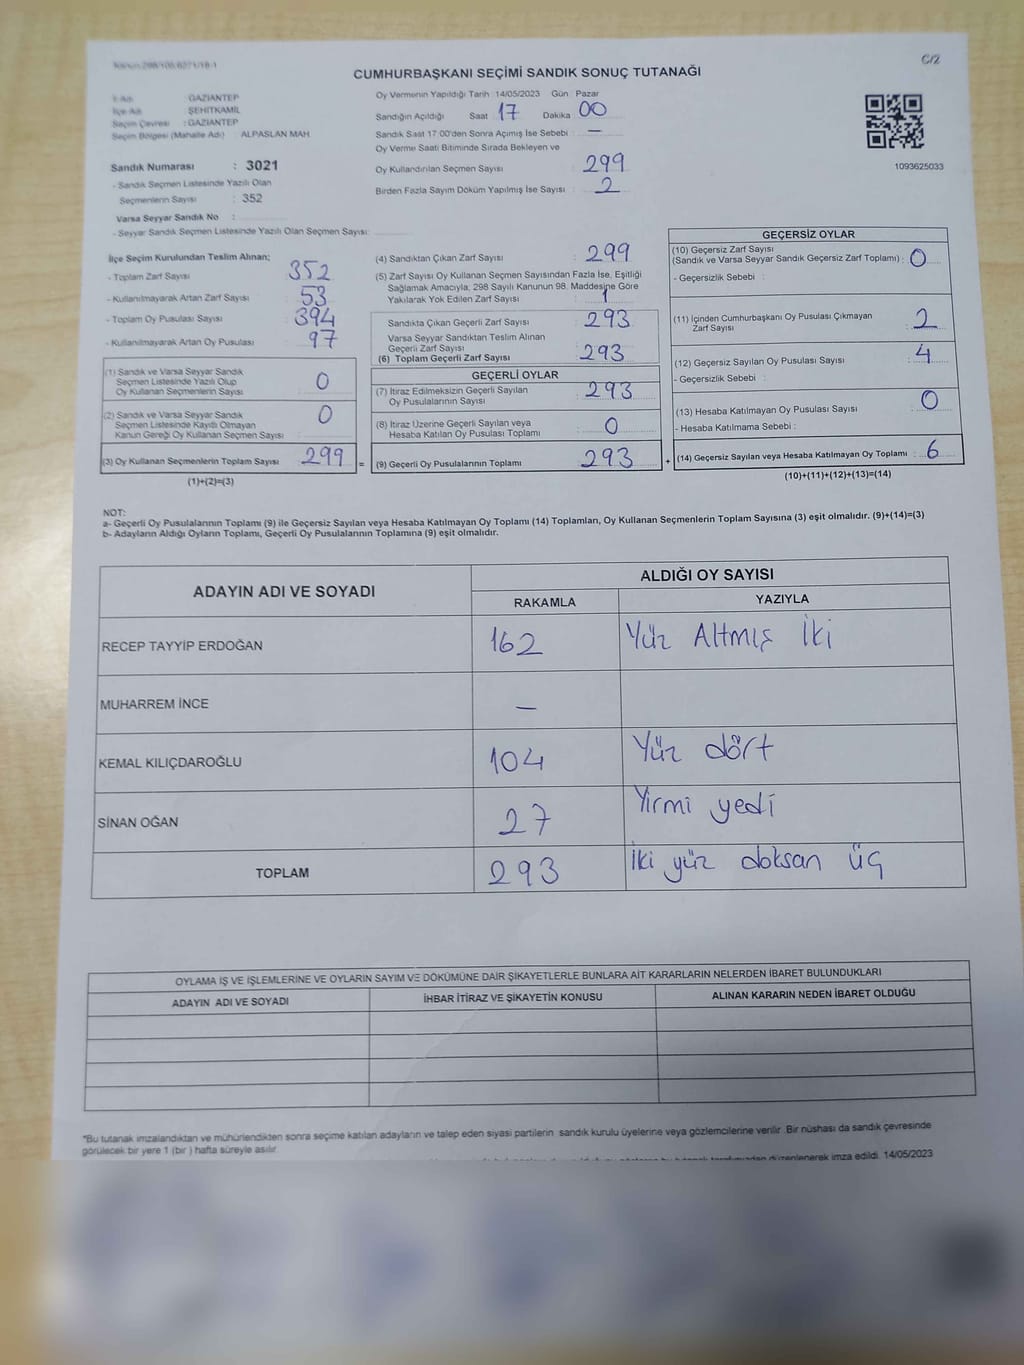 C/2
CUMHURBAŞKANI SEÇİMİ SANDIK SONUÇ TUTANAĞI
İl Adı : GAZİANTEP
İlçe Adı : ŞEHİTKAMİL
Seçim Çevresi : GAZİANTEP
Seçim Bölgesi (Mahalle Adı) : ALPASLAN MAH.
Sandık Numarası : 3021
- Sandık Seçmen Listesinde Yazılı Olan
Seçmenlerin Sayısı : 352
Varsa Seyyar Sandık No :
- Seyyar Sandık Seçmen Listesinde Yazılı Olan Seçmen Sayısı:
Oy Vermenin Yapıldığı Tarih : 14/05/2023 Gün : Pazar
Sandığın Açıldığı Saat : 17 Dakika : 00
Sandık Saat 17:00'den Sonra Açımış İse Sebebi : —
Oy Verme Saati Bitiminde Sırada Bekleyen ve
Oy Kullandırılan Seçmen Sayısı : 299
Birden Fazla Sayım Döküm Yapılmış İse Sayısı : 2
1093625033
İlçe Seçim Kurulundan Teslim Alınan;
- Toplam Zarf Sayısı : 352
- Kullanılmayarak Artan Zarf Sayısı : 53
- Toplam Oy Pusulası Sayısı : 394
- Kullanılmayarak Artan Oy Pusulası : 97
(1) Sandık ve Varsa Seyyar Sandık
Seçmen Listesinde Yazılı Olup
Oy Kullanan Seçmenlerin Sayısı : 0
(2) Sandık ve Varsa Seyyar Sandık
Seçmen Listesinde Kayıtlı Olmayan
Kanun Gereği Oy Kullanan Seçmen Sayısı : 0
(3) Oy Kullanan Seçmenlerin Toplam Sayısı : 299 =
(1)+(2)=(3)
(4) Sandıktan Çıkan Zarf Sayısı : 299
(5) Zarf Sayısı Oy Kullanan Seçmen Sayısından Fazla İse, Eşitliği
Sağlamak Amacıyla, 298 Sayılı Kanunun 98. Maddesine Göre
Yakılarak Yok Edilen Zarf Sayısı : 1
Sandıkta Çıkan Geçerli Zarf Sayısı : 293
Varsa Seyyar Sandıktan Teslim Alınan
Geçerli Zarf Sayısı
(6) Toplam Geçerli Zarf Sayısı : 293
GEÇERLİ OYLAR
(7) İtiraz Edilmeksizin Geçerli Sayılan
Oy Pusulalarının Sayısı : 293
(8) İtiraz Üzerine Geçerli Sayılan veya
Hesaba Katılan Oy Pusulası Toplamı : 0
(9) Geçerli Oy Pusulalarının Toplamı : 293 +
GEÇERSİZ OYLAR
(10) Geçersiz Zarf Sayısı
(Sandık ve Varsa Seyyar Sandık Geçersiz Zarf Toplamı) : 0
- Geçersizlik Sebebi :
(11) İçinden Cumhurbaşkanı Oy Pusulası Çıkmayan
Zarf Sayısı : 2
(12) Geçersiz Sayılan Oy Pusulası Sayısı : 4
- Geçersizlik Sebebi :
(13) Hesaba Katılmayan Oy Pusulası Sayısı : 0
- Hesaba Katılmama Sebebi :
(14) Geçersiz Sayılan veya Hesaba Katılmayan Oy Toplamı : 6
(10)+(11)+(12)+(13)=(14)
NOT:
a- Geçerli Oy Pusulalarının Toplamı (9) ile Geçersiz Sayılan veya Hesaba Katılmayan Oy Toplamı (14) Toplamları, Oy Kullanan Seçmenlerin Toplam Sayısına (3) eşit olmalıdır. (9)+(14)=(3)
b- Adayların Aldığı Oyların Toplamı, Geçerli Oy Pusulalarının Toplamına (9) eşit olmalıdır.
ADAYIN ADI VE SOYADI
ALDIĞI OY SAYISI
RAKAMLA YAZIYLA
RECEP TAYYİP ERDOĞAN 162 Yüz Altmış İki
MUHARREM İNCE —
KEMAL KILIÇDAROĞLU 104 Yüz dört
SİNAN OĞAN 27 Yirmi yedi
TOPLAM 293 İki yüz doksan üç
OYLAMA İŞ VE İŞLEMLERİNE VE OYLARIN SAYIM VE DÖKÜMÜNE DAİR ŞİKAYETLERLE BUNLARA AİT KARARLARIN NELERDEN İBARET BULUNDUKLARI
ADAYIN ADI VE SOYADI İHBAR İTİRAZ VE ŞİKAYETİN KONUSU ALINAN KARARIN NEDEN İBARET OLDUĞU
*Bu tutanak imzalandıktan ve mühürlendikten sonra seçime katılan adayların ve talep eden siyasi partilerin sandık kurulu üyelerine veya gözlemcilerine verilir. Bir nüshası da sandık çevresinde
görülecek bir yere 1 (bir ) hafta süreyle asılır.
düzenlenerek imza edildi. 14/05/2023